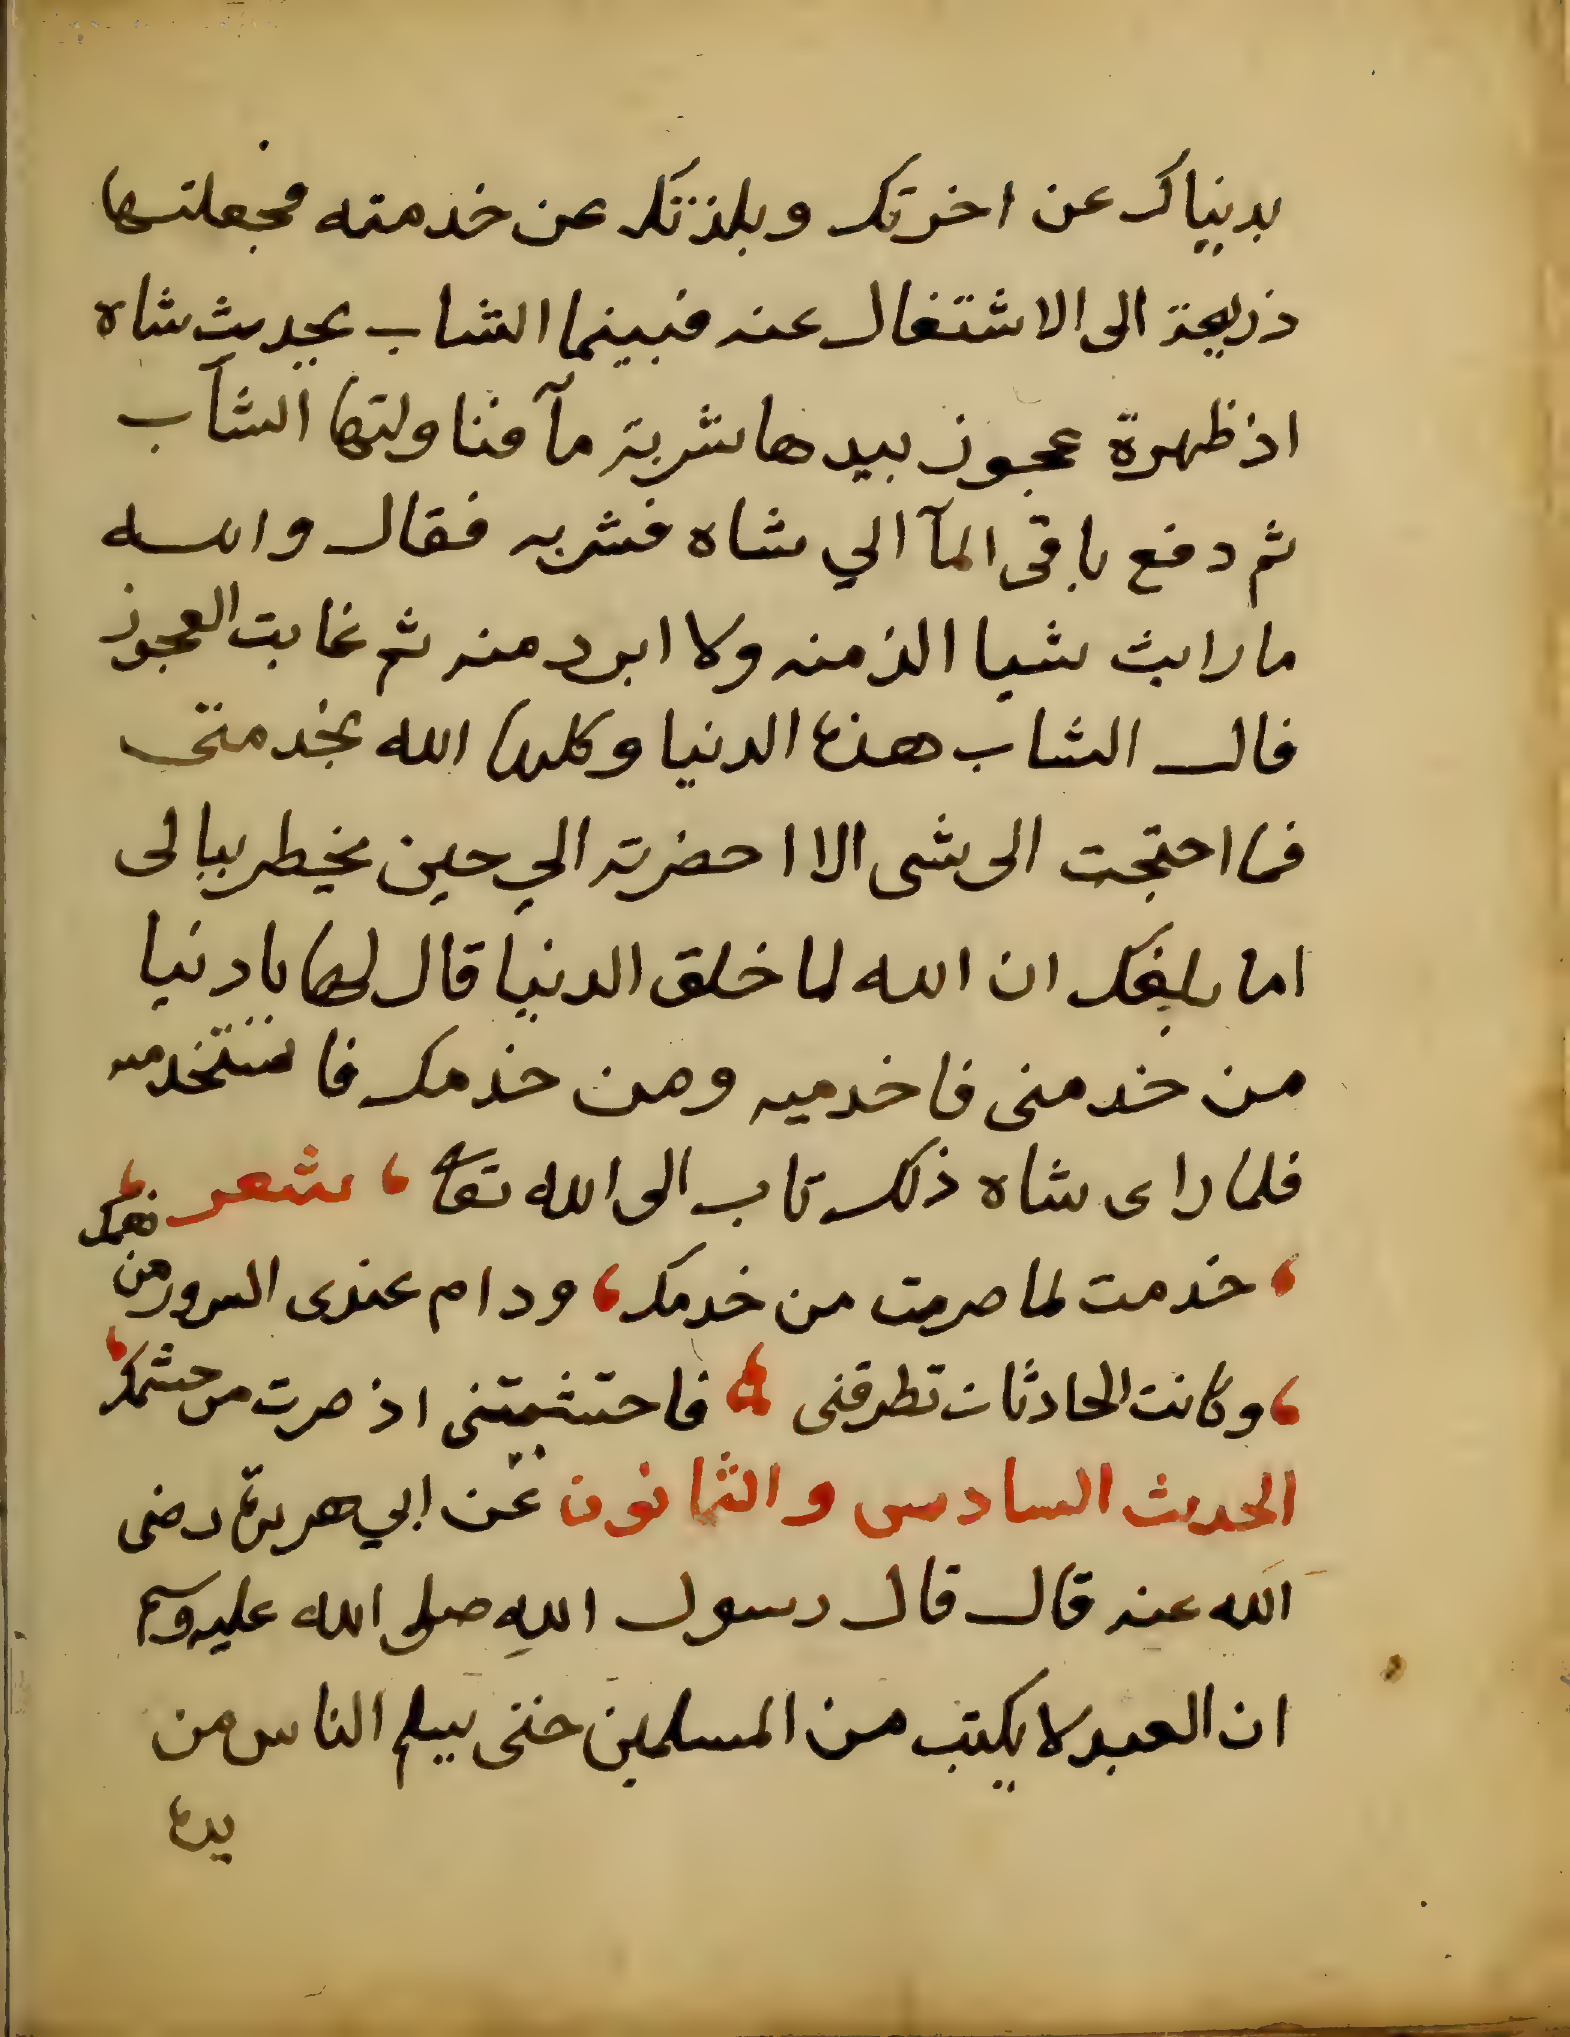 بدنياك عن اخرتك وبلذتك عن خدمته فجعلتها
ذريعة الى الاشتغال عنه فبينما الشاب يحديث شاه
اذ ظهرة عجوز بيدها شربة مآ فناولتها الشآب
ثم دفع باقى المآ الي شاه فشربه فقال والله
ما رايت شيا الذ منه ولا ابرد منه ثم غابت العجوز
قال الشاب هذه الدنيا وكلها الله بخدمتى
فما احتجت الى شى الا احضرته الي حين يخطر ببالى
اما بلغك ان الله لما خلق الدنيا قال لها يا دنيا
من خدمنى فاخدميه ومن خدمك فاستخدميه
فلما راى شاه ذلك تاب الى الله تعا ، شعر ،
، خدمت لما صرت من خدمك ، ودام عندى السرور من نعمك
، وكانت الحادثات تطرقنى ، فاحتشمتنى اذ صرت من حشمك ،
الحديث السادس والثمانون عن ابي هريرة رضى
الله عنه قال قال رسول الله صلى الله عليه وسلم
ان العبد لا يكتب من المسلمين حتى يسلم الناس من
يده